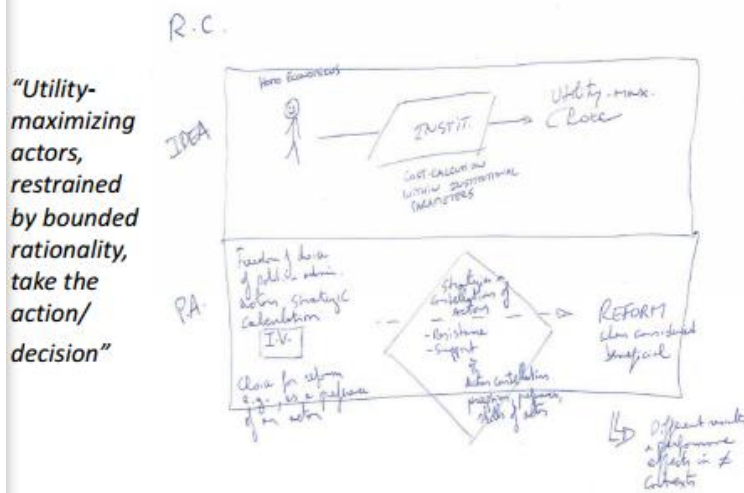 "Utility-
maximizing
actors,
restrained
by bounded
rationality,
take the
action/
decision"
R.C.
IDEA
HOMO ECONOMICUS
INSTIT.
COST-CALCULATION
WITHIN INSTITUTIONAL
PARAMETERS
Utility-max.
Choice
P.A.
Freedom of choice
of public admin.
actors, strategic
calculation
I.V.
Choice for reform
e.g., as a preference
of an actor
Strategies in
Constellations of
Actors
- Resistance
- Support
Actor constellation
perception, preferences,
skills of actor
REFORM
when considered
beneficial
Different results
performance
effects in ≠
Contexts